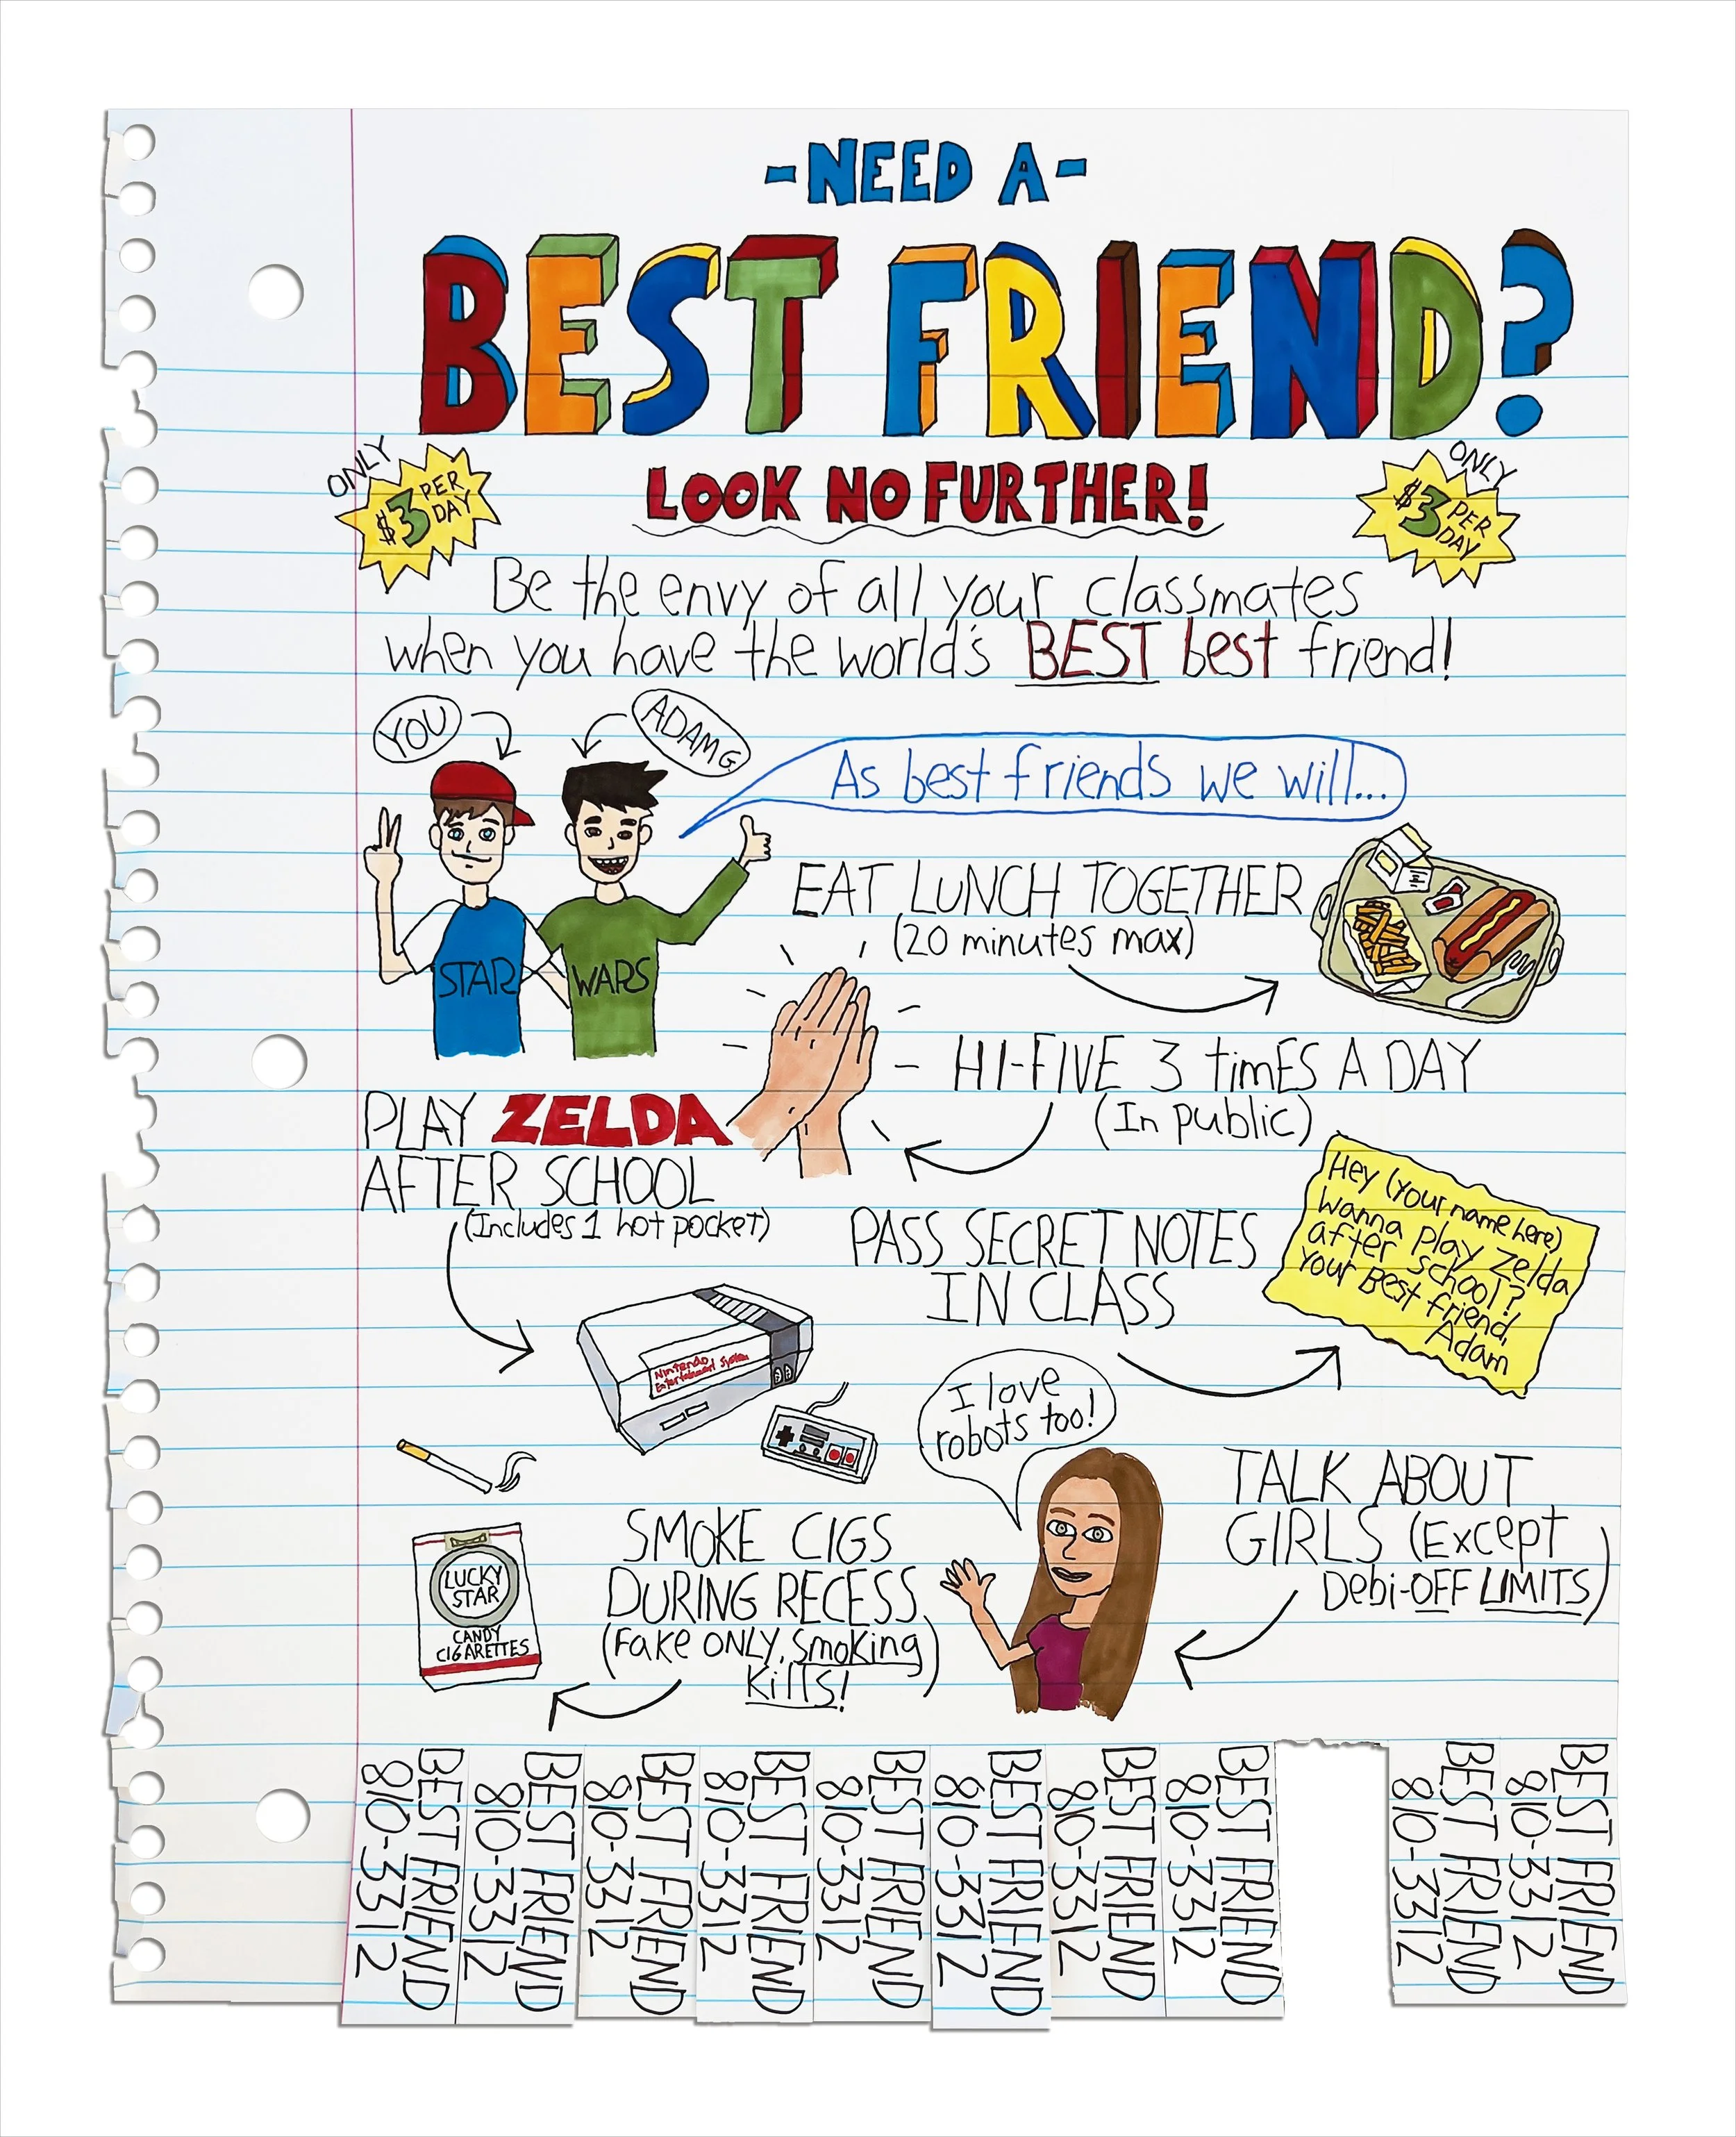 -NEED A-
BEST FRIEND?
LOOK NO FURTHER!
ONLY
$3 PER
DAY
ONLY
$3 PER
DAY
Be the envy of all your classmates
when you have the world's BEST best friend!
YOU
ADAM G
As best friends we will...
STAR WARS
EAT LUNCH TOGETHER
(20 minutes max)
HI-FIVE 3 timES A DAY
(In public)
PLAY ZELDA
AFTER SCHOOL
(Includes 1 hot pocket)
Nintendo
Entertainment System
PASS SECRET NOTES
IN CLASS
Hey (your name here)
Wanna play Zelda
after school?
Your Best friend,
Adam
I love
robots too!
TALK ABOUT
GIRLS (Except
Debi-OFF LIMITS)
SMOKE CIGS
DURING RECESS
(Fake ONLY, Smoking
Kills!)
LUCKY
STAR
CANDY
CIGARETTES
BEST FRIEND
810-3312
BEST FRIEND
810-3312
BEST FRIEND
810-3312
BEST FRIEND
810-3312
BEST FRIEND
810-3312
BEST FRIEND
810-3312
BEST FRIEND
810-3312
BEST FRIEND
810-3312
BEST FRIEND
810-3312
BEST FRIEND
810-3312